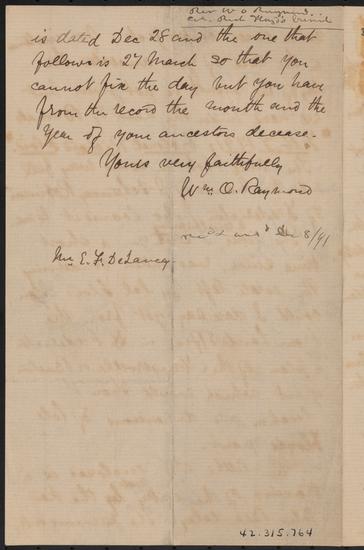 Rev W O Raymond
is dated Dec 28 and the one that
follows is 27 March so that you
cannot fix the day but you have
from the record the month and the
year of your ancestors decease.
Yours very faithfully
Wm. O. Raymond
8/91
Mr. E. F. DeLancey
42.315.764